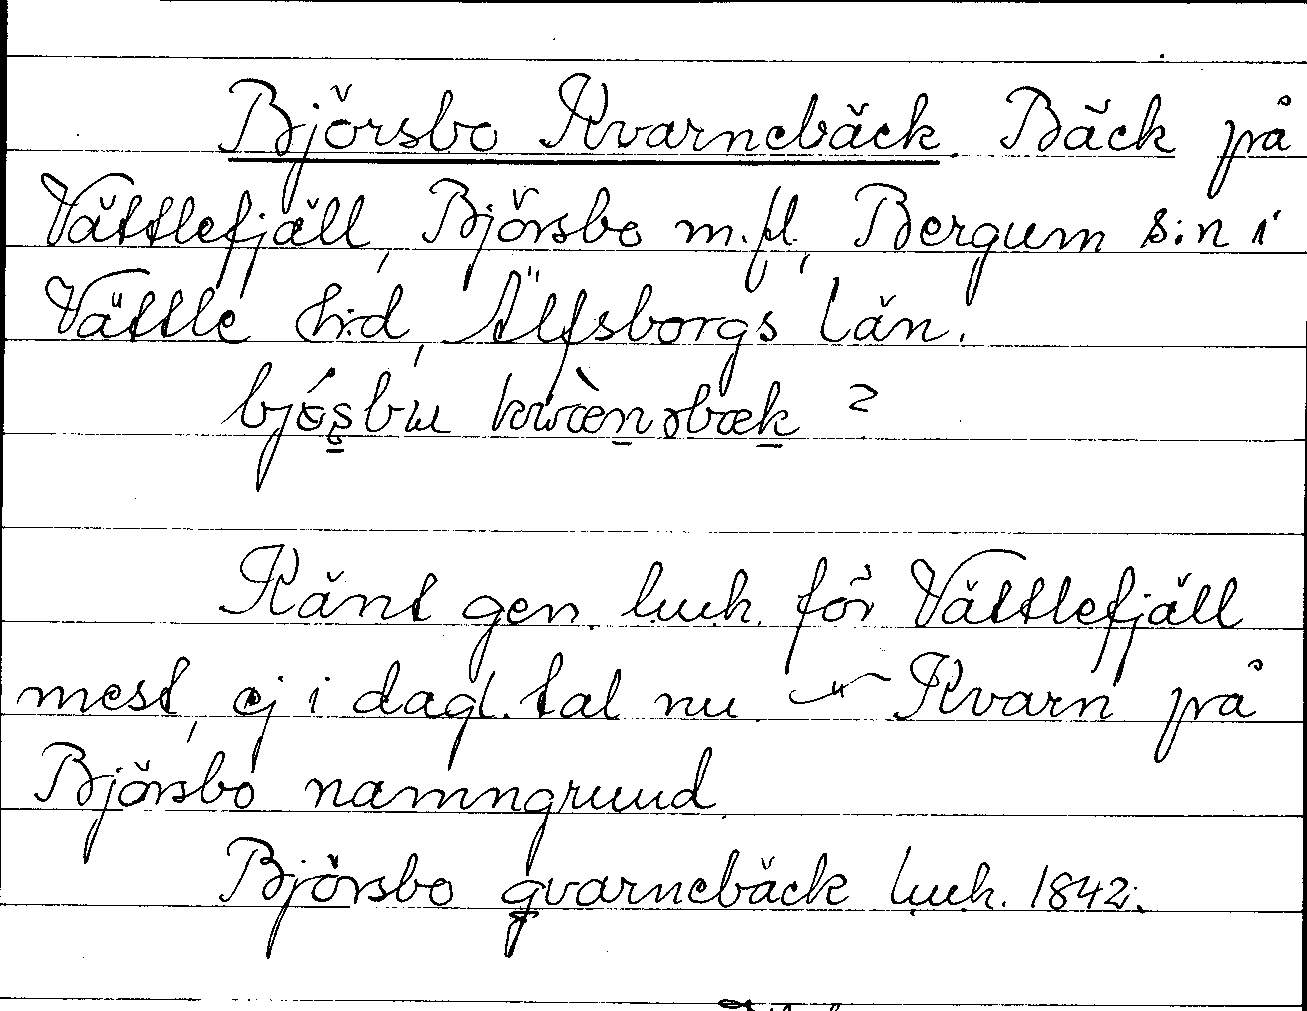 Björsbo Kvarnebäck. Bäck på
Vättlefjäll, Björsbo m.fl., Bergum s:n i
Vättle h:d, Älfsborgs län.
?
Känt gen. l.u.h. för Vättlefjäll
mest, ej i dagl. tal nu. Kvarn på
Björsbo namngrund.
Björsbo qvarnebäck l.u.h. 1842.